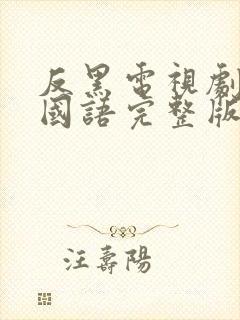 反黑電視劇
國語完整版
汪壽陽